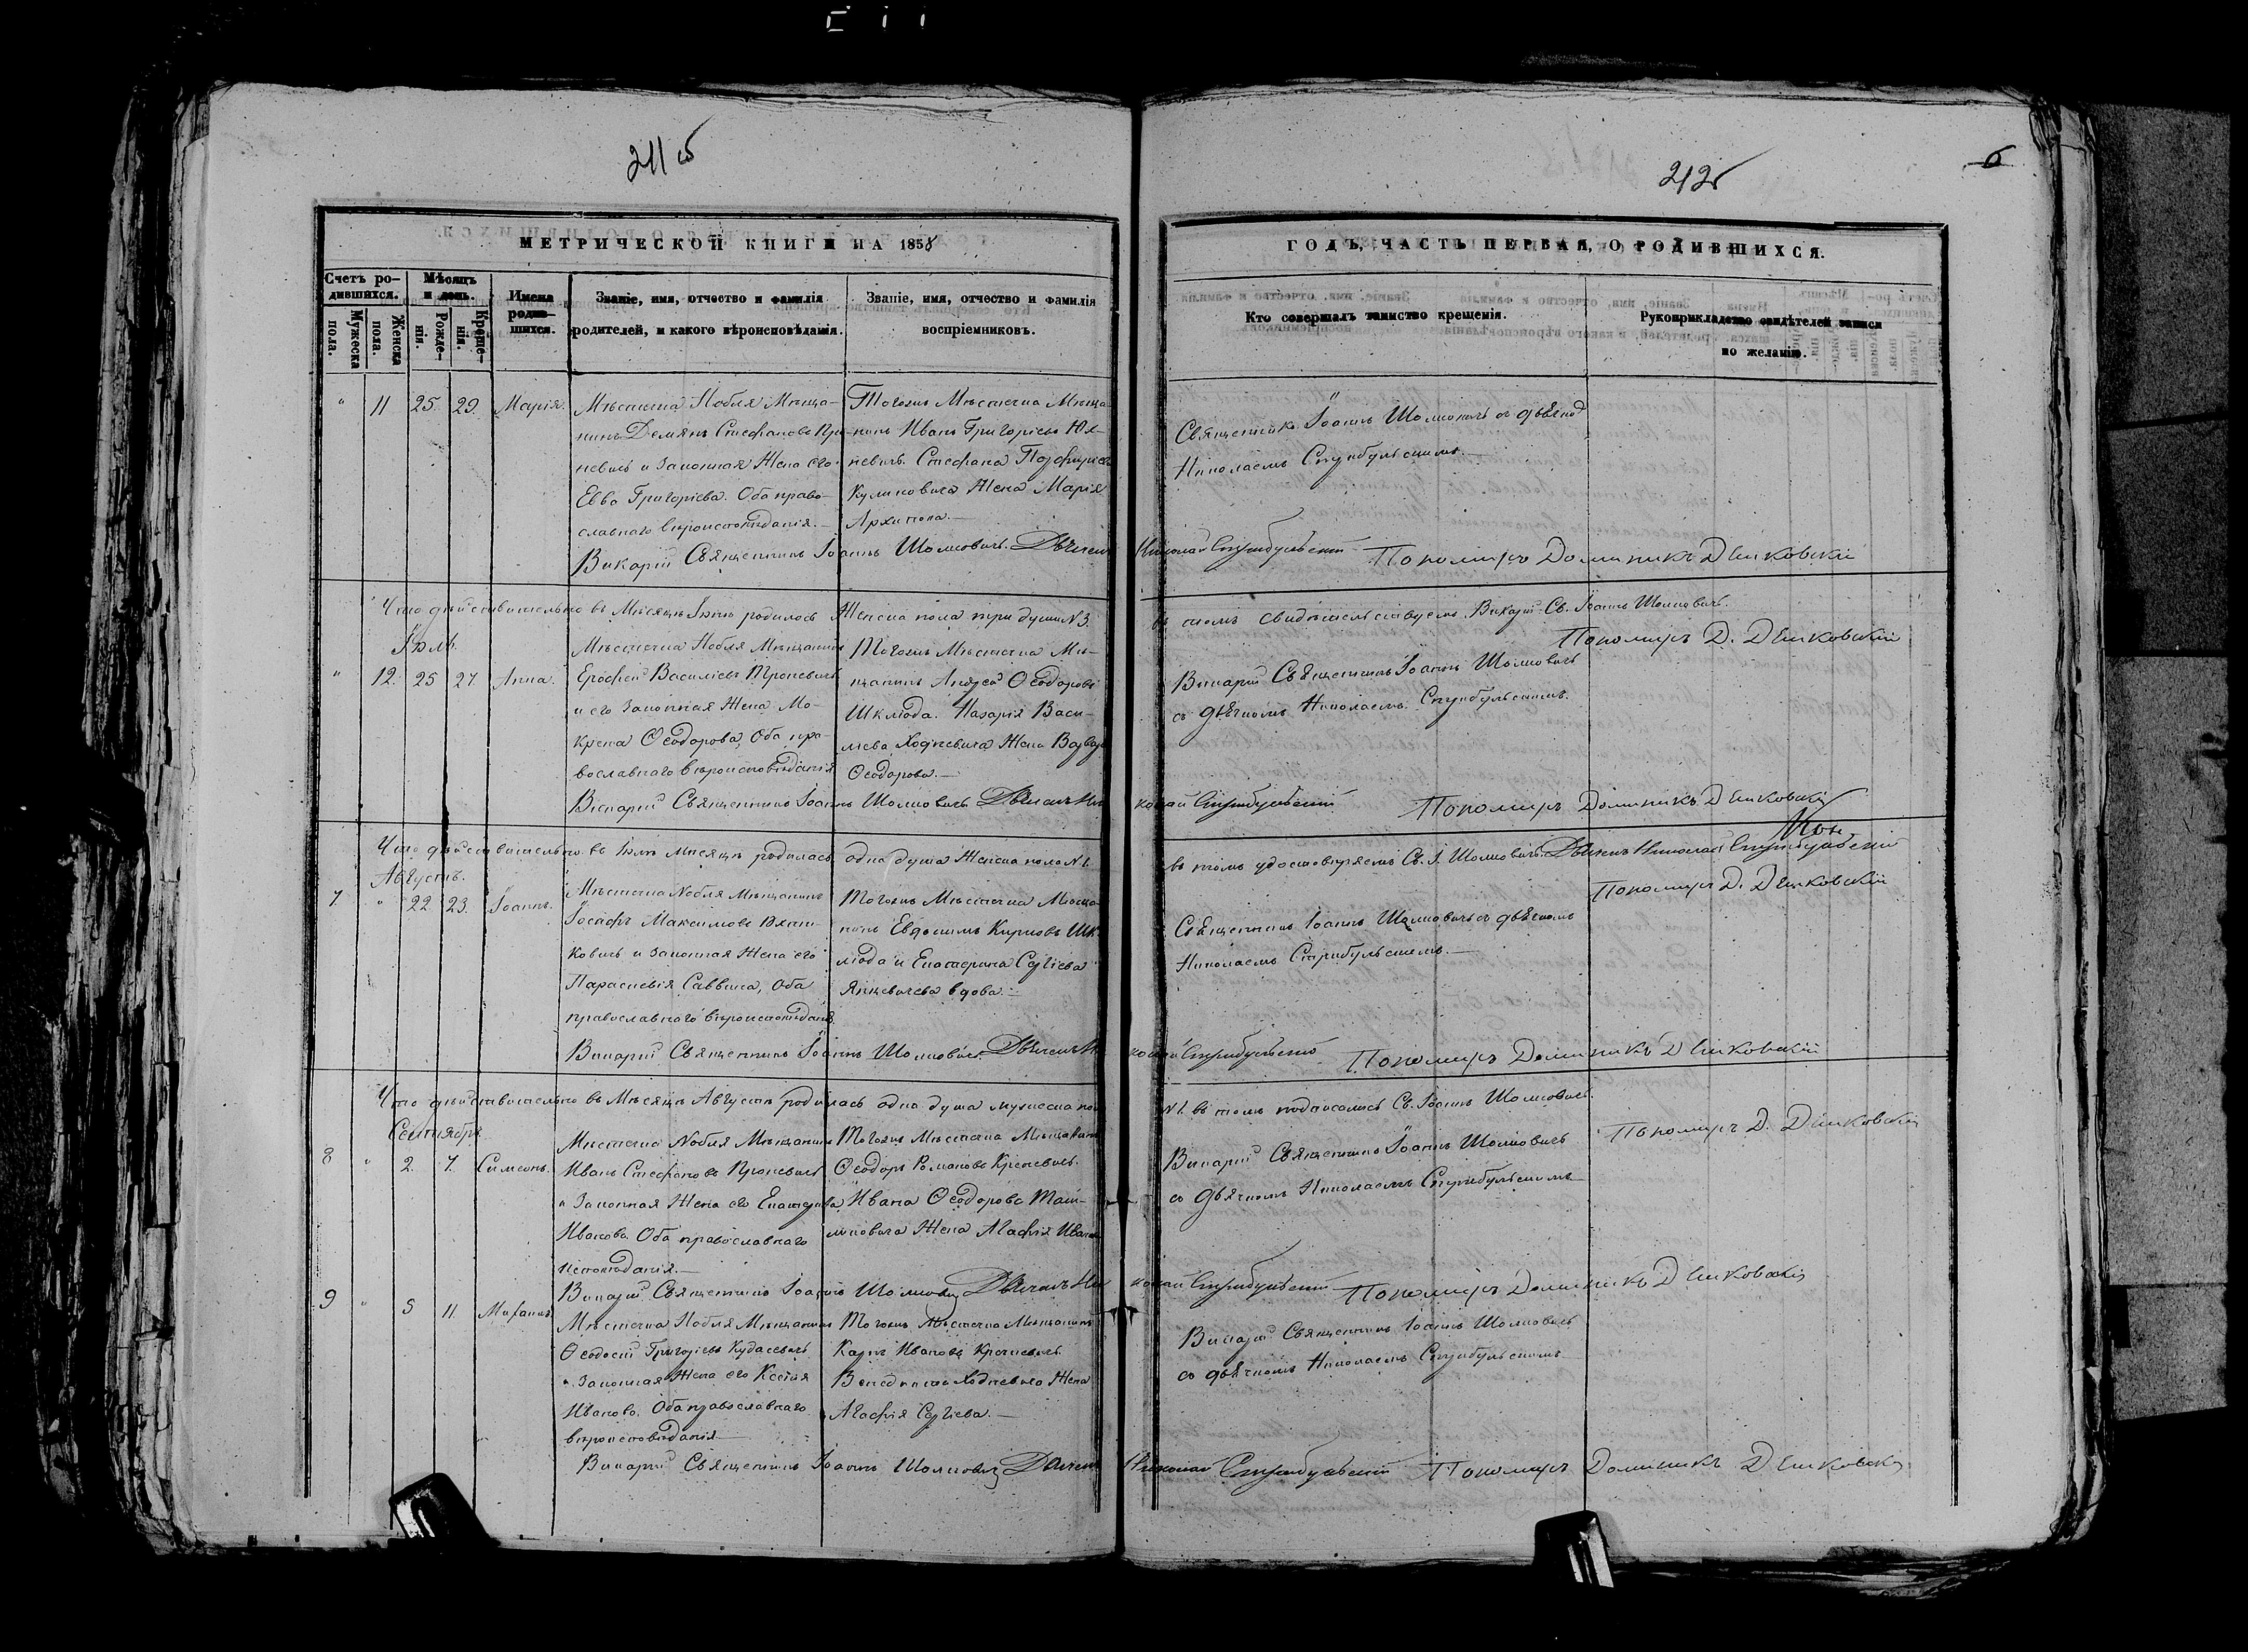 211 об
212
6
МЕТРИЧЕСКОЙ КНИГИ НА 1858
ГОДЪ, ЧАСТЬ ПЕРВАЯ, О РОДИВШИХСЯ.
Счетъ родившихся.
Мѣсяцъ и день.
Имена родившихся.
Званіе, имя, отчество и фамилія родителей, и какого вѣроисповѣданія.
Званіе, имя, отчество и фамилія воспріемниковъ.
Кто совершалъ таинство крещенія.
Рукоприкладство свидѣтелей записи по желанію.
Мужеска пола.
Женска пола.
Рожденія.
Крещенія.
" 11 25. 29. Марія.
Мѣстечка Нобля Мѣща-
нинъ Демянъ Стефановъ
и законная Жена его
Евва Григоріева. Оба право-
славнаго вѣроисповѣданія.
Тогожъ Мѣстечка Мѣща-
нинъ Иванъ Григорьевъ
Стефана
Куликовича Жена Марія
Архипова.
Священникъ Іоаннъ Шоломовичъ съ дьячкомъ
Николаемъ Стрибульскимъ.
Викарій Священникъ Іоаннъ Шоломовичъ. Дьячекъ Николай Стрибульскій Пономаръ Доминикъ Дешковскій
Что дѣйствительно въ Мѣсяцѣ Іюнѣ родилось Женска пола три души №3.
въ томъ свидѣтельствуемъ. Викарій Св. Іоаннъ Шоломовичъ.
Пономаръ Д. Дешковскій
Іюль.
" 12. 25 27. Анна.
Мѣстечка Нобля Мѣщанинъ
Ерофей Василіевъ
и его законная Жена Мо-
крена Ѳеодорова, Оба пра-
вославнаго вѣроисповѣданія
Тогожъ Мѣстечка Мѣ-
щанинъ Андрей Ѳеодоровъ
Шклода. Назарія Васи-
лева Ходневича Жена Варвара
Ѳеодорова.
Викарій Священникъ Іоаннъ Шоломовичъ
съ дьячкомъ Николаемъ Стрибульскимъ.
Викарій Священникъ Іоаннъ Шоломовичъ Дьячекъ Николай Стрибульскій Пономаръ Доминикъ Дешковскій
Что дѣйствительно въ Іюлѣ Мѣсяцѣ родилась одна душа Женска пола №1.
въ томъ удостовѣряемъ Св. І. Шоломовичъ Дьячекъ Николай Стрибульскій
Пономаръ Д. Дешковскій
Августъ.
7 " 22. 23. Іоаннъ.
Мѣстечка Нобля Мѣщанинъ
Іосафъ Максимовъ Вяти-
ковичъ и законная Жена его
Параскевія Саввина, Оба
православнаго вѣроисповѣданія.
Тогожъ Мѣстечка Мѣща-
нинъ Евдокимъ Кириловъ Шк-
лода и Екатерина Сергіева
Янкевичева вдова.
Священникъ Іоаннъ Шоломовичъ съ дьячкомъ
Николаемъ Стрибульскимъ.
Викарій Священникъ Іоаннъ Шоломовичъ Дьячекъ Николай Стрибульскій Пономаръ Доминикъ Дешковскій
Что дѣйствительно въ Мѣсяцѣ Августѣ родилась одна душа мужеска пола
№1. въ томъ подписались Св. Іоаннъ Шоломовичъ.
Пономаръ Д. Дешковскій
Сентябрь
8 " 2. 7. Симеонъ.
Мѣстечка Нобля Мѣщанинъ
Иванъ Стефановъ
и Законная Жена его Екатерина
Иванова Оба православнаго
исповѣданія.
Тогожъ Мѣстечка Мѣщанинъ
Ѳеодоръ Романовъ Креневичъ.
Ивана Ѳеодорова
Жена Агафія Иванова
Викарій Священникъ Іоаннъ Шоломовичъ
со дьячкомъ Николаемъ Стрибульскимъ
Викарій Священникъ Іоаннъ Шоломовичъ Дьячекъ Николай Стрибульскій Пономаръ Доминикъ Дешковскій
9 " 5 11. Михаилъ.
Мѣстечка Нобля Мѣщанинъ
Ѳеодосій Григорьевъ Кудасевичъ
и Законная Жена его Ксенія
Иванова. Оба православнаго
вѣроисповѣданія
Тогожъ Мѣстечка Мѣщанинъ
Карпъ Ивановъ Креневичъ.
Ходневича Жена
Агафія Сергіева.
Викарій Священникъ Іоаннъ Шоломовичъ
со дьячкомъ Николаемъ Стрибульскимъ
Викарій Священникъ Іоаннъ Шоломовичъ Дьячекъ Николай Стрибульскій Пономаръ Доминикъ Дешковскій